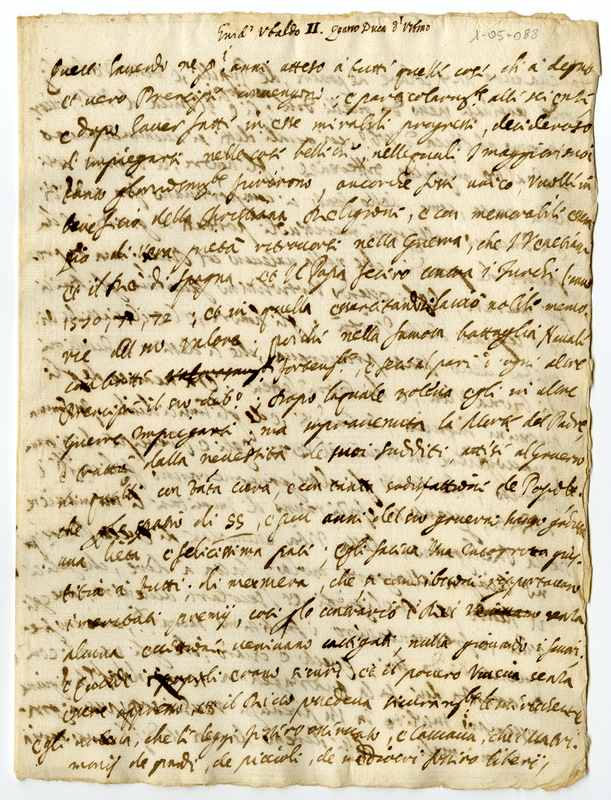 Guid.º Ubaldo II. quarto Duca d'Urbino
1-05-088
Questi havendo ne p.i anni atteso a tutti quelle cose, ch'a degno
et vero Prencipe convengono, e particolarm.te alle scienze
e dopo haver fatti in esse mirabili progressi, desideroso
di impiegarsi nelle cose belliche, nelle quali i maggiori suoi
tanto gloriosam.te fiorirono, ancorche fosse unico, volle in
beneficio della Christiana Religione, e con memorabile essem
pio di vera pietà ritrovarsi nella Guerra, che i Venetiani
et il Rè di Spagna et il Papa fecero contra i Turchi
1570, 71, 72; et in quella essercitandosi lasciò nobile memo
rie del suo valore; poiche nella famosa battaglia Navale
combatté fortem.te, e fece al pari d'ogni altro
Prencipe il suo deb.o; dopo laquale voleva egli in altre
guerre impiegarsi; ma sopravenuta la Morte del Padre,
e tratto dalla necessità de suoi sudditi, attese al governo
con tanta cura, e con tanta sodisfattione de Popoli
che spatio di 55, e più anni del suo governo hanno goduto
una lieta, e felicissima pace; egli faceva una incorrotta giu
stitia a tutti; di maniera, che si come i buoni riportavano
i meritati premij, così p lo contrario i rei senza
alcuna eccettione venivano castigati, nulla giovando i favori.
erano sicuri, et il povero viveva senza
essere oppresso, et il Ricco
egli voleva, che le leggi fossero osservate, e lasciava, che i matri
monij de grandi, de piccoli, de mediocri fossero liberi,